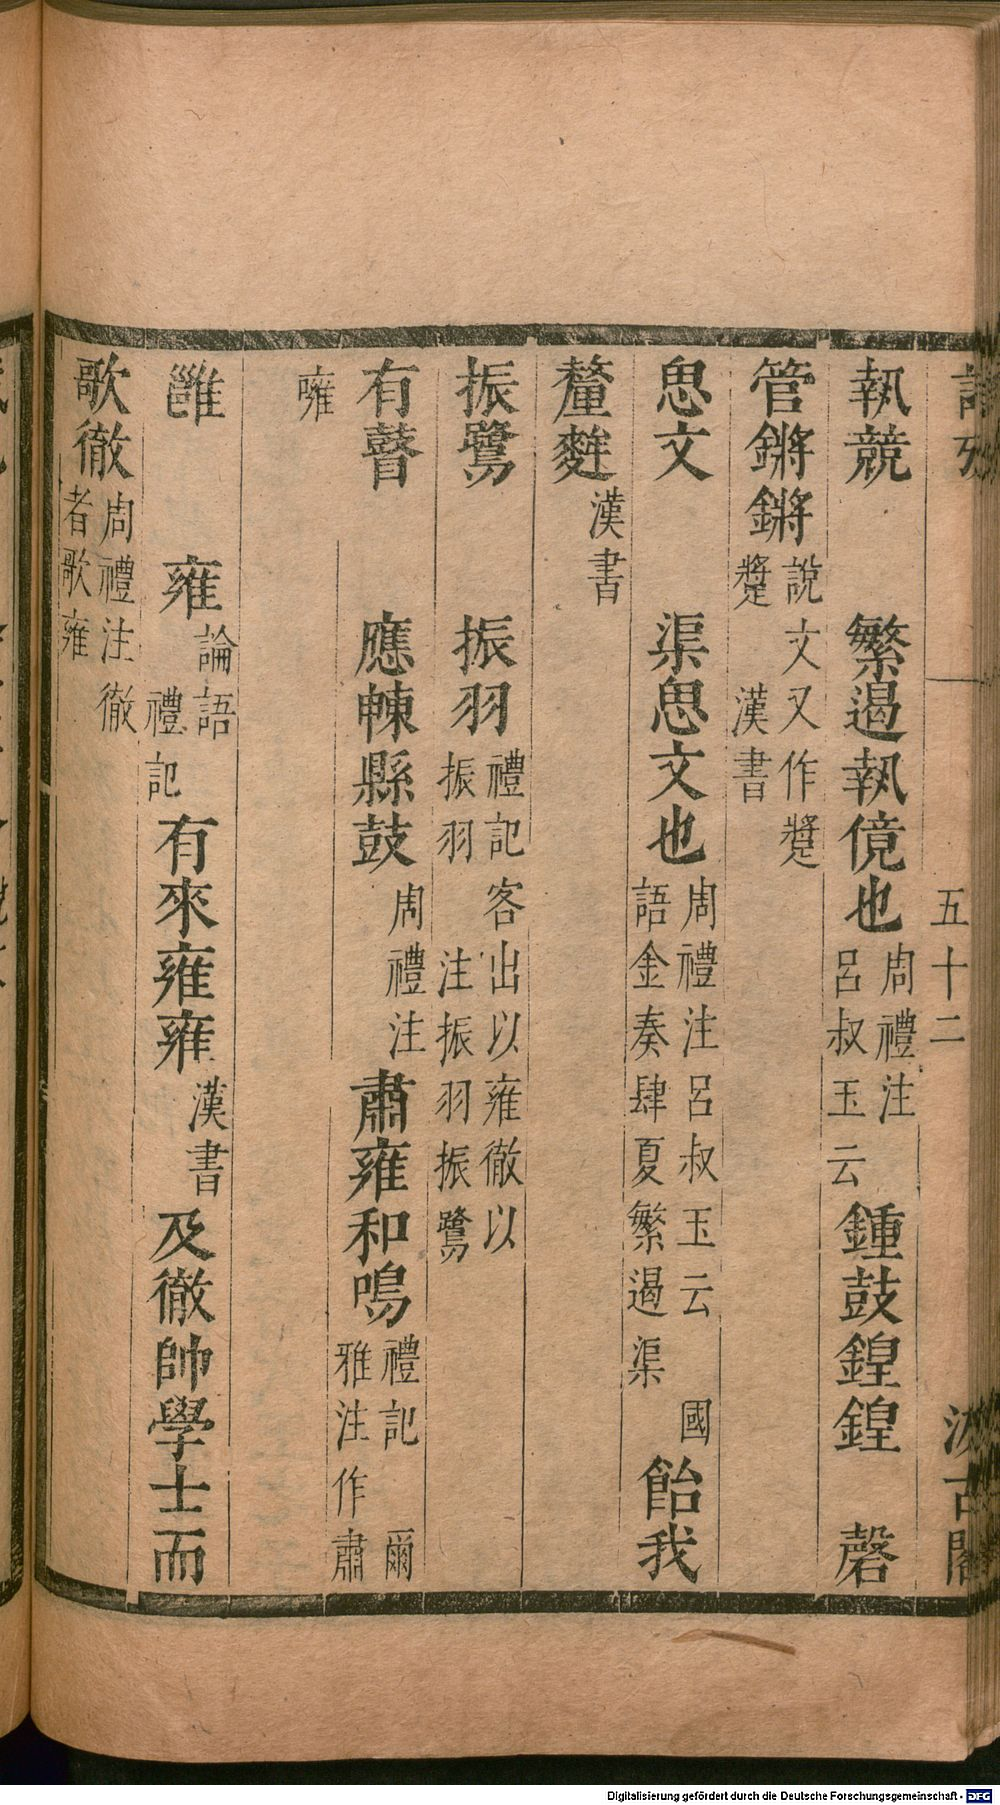 詩攷 五十二 汲古閣
執競 繁遏執傹也 周禮注 呂叔玉云 鍾鼓鍠鍠 磬
管鏘鏘 說文又作 漢書
思文 渠思文也 周禮注呂叔玉云 國語金奏肆夏繁遏渠 飴我
釐麰 漢書
振鷺 振羽 禮記客出以雍徹以振羽 注振羽振鷺
有瞽 應朄縣鼓 周禮注 肅雍和鳴 禮記 爾雅注作肅
噰
雝 雍 論語 禮記 有來雍雍 漢書 及徹帥學士而
歌徹 周禮注徹者歌雍
Digitalisierung gefördert durch die Deutsche Forschungsgemeinschaft - DFG